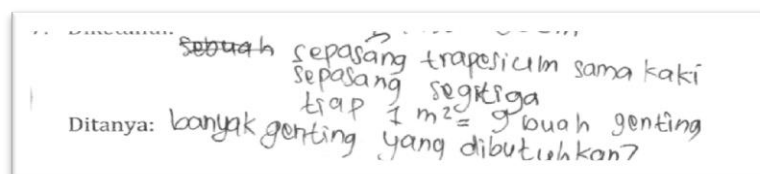 sepasang trapesium sama kaki
sepasang segitiga
tiap 1 m² = 9 buah genting
Ditanya: banyak genting yang dibutuhkan?